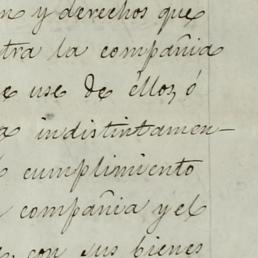 n y derechos que
tra la compañia
e use de éllos, ó
a indistintamen-
cumplimiento
compañia y el
con sus bienes